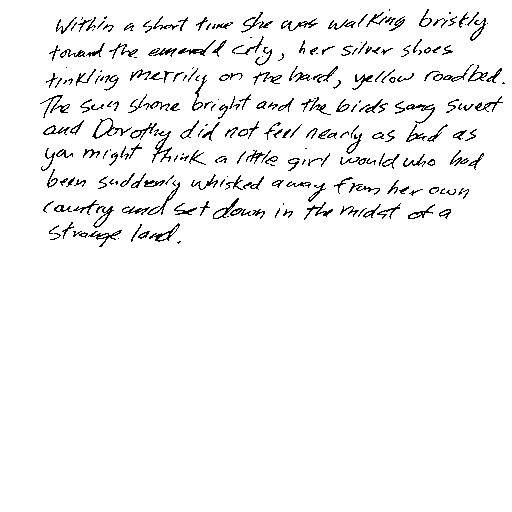 Within a short time she was walking briskly
toward the emerald City, her silver shoes
tinkling merrily on the hard, yellow roadbed.
The sun shone bright and the birds sang sweet
and Dorothy did not feel nearly as bad as
you might think a little girl would who had
been suddenly whisked away from her own
country and set down in the midst of a
strange land.